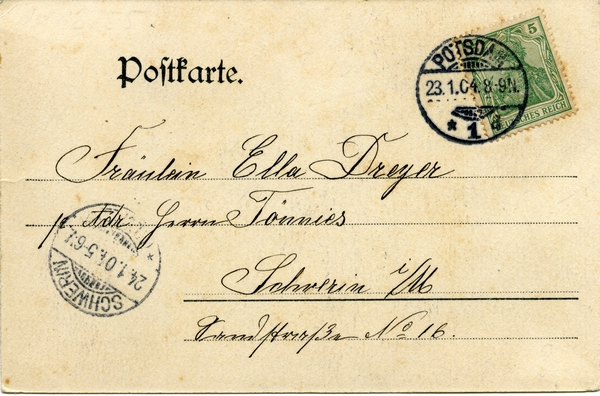 Postkarte.
5
DEUTSCHES REICH
POTSDAM
23.1.04.8-9N.
* 1 d
Fräulein Ella Dreyer
p. Adr. Herrn Tönnies
Schwerin i/M
Sandstraße No 16.
SCHWERIN
24.1.04.5-6V.